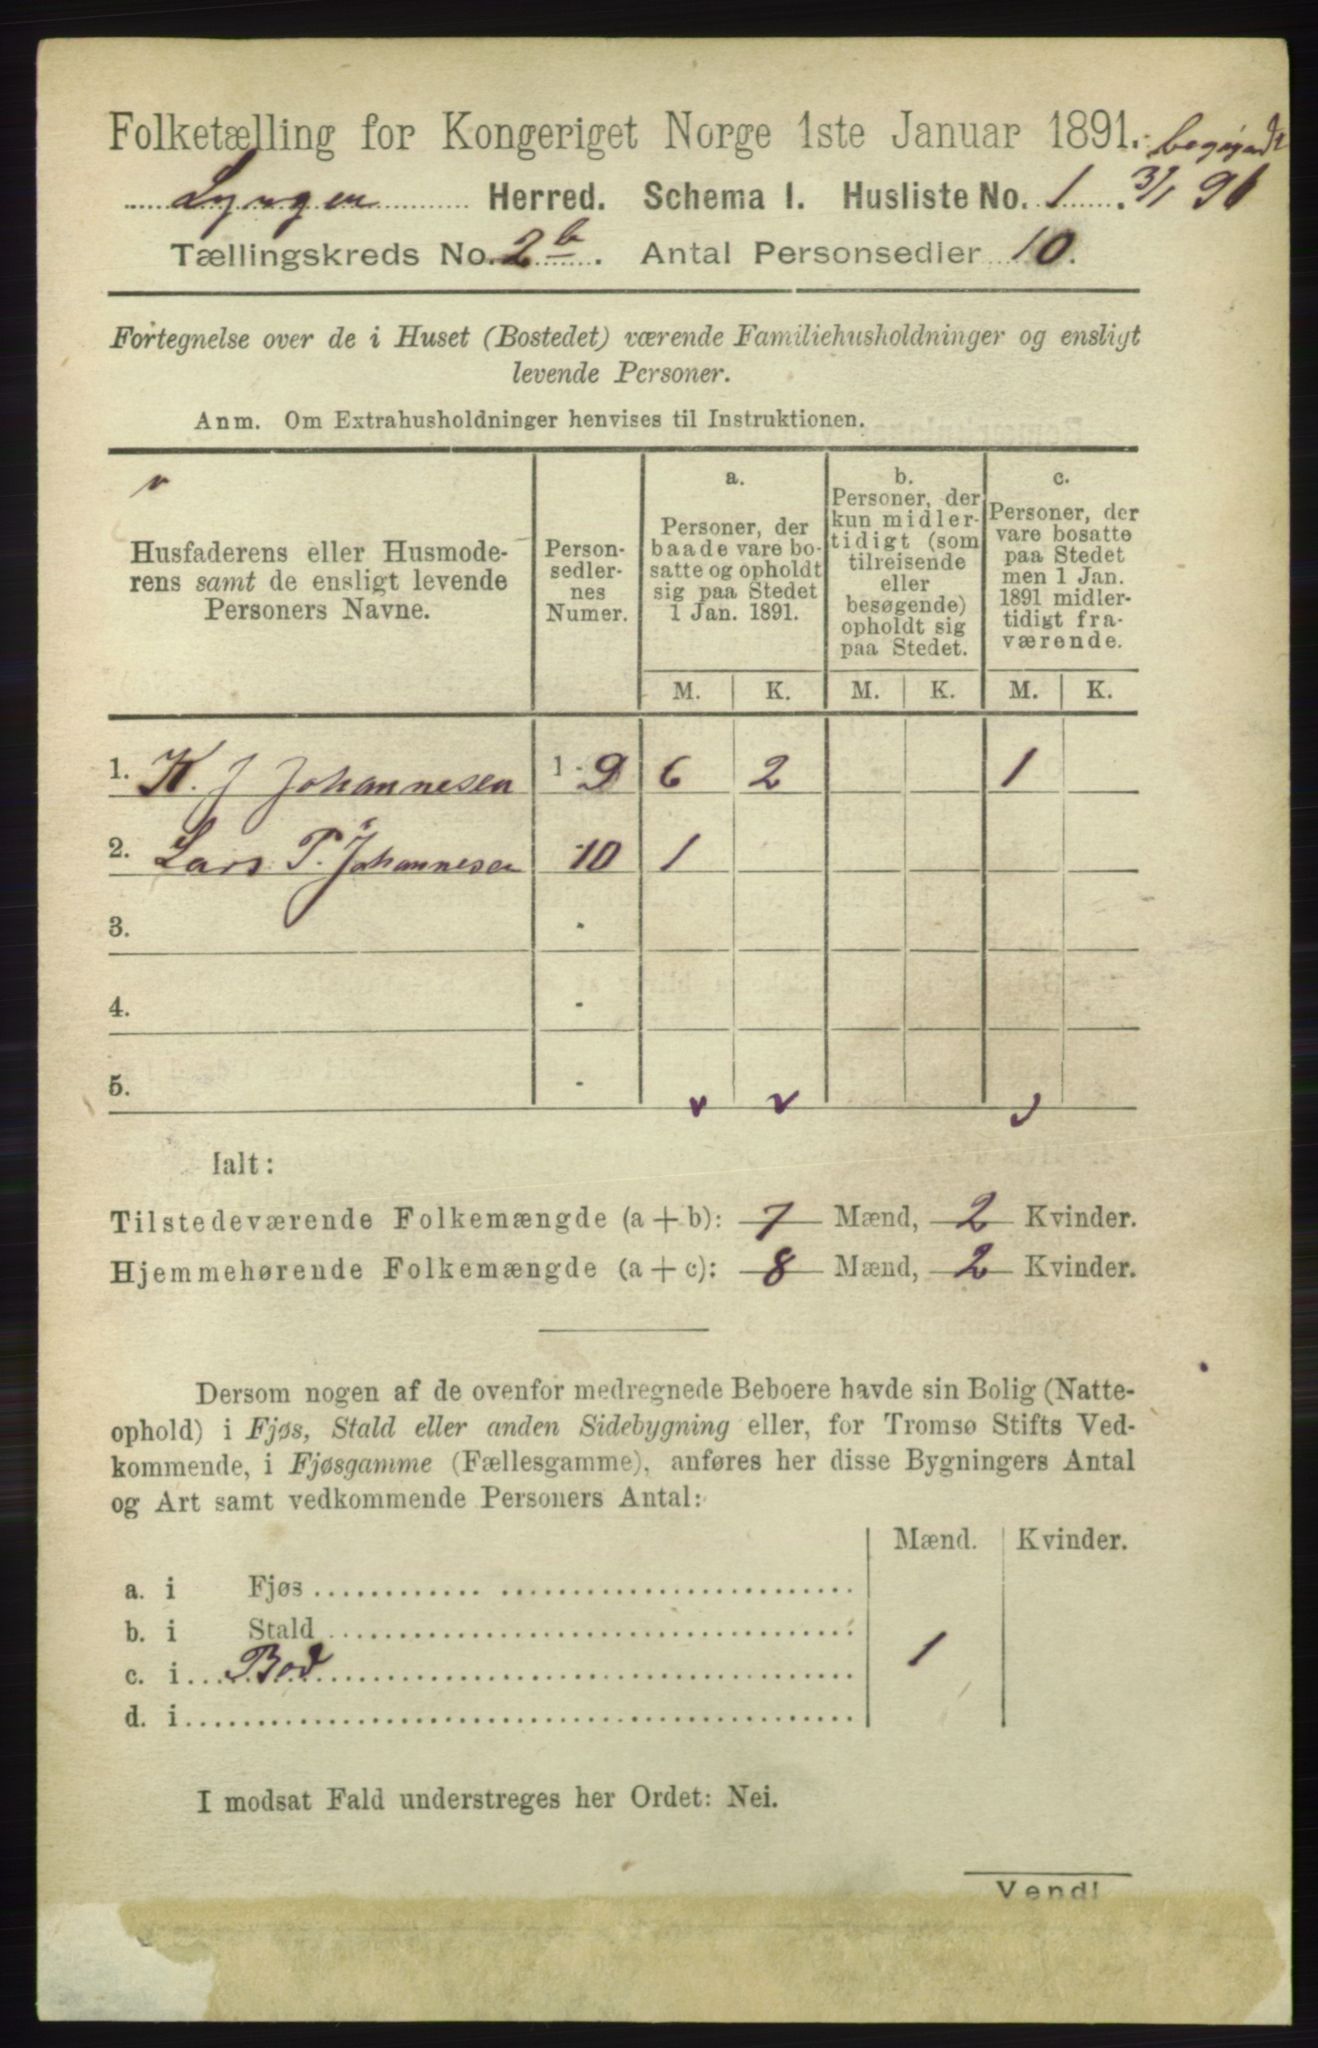 Folketælling for Kongeriget Norge 1ste Januar 1891. begyndt
Lyngen Herred. Schema I. Husliste No. 1. 3/1 91
Tællingskreds No. 2b. Antal Personsedler 10.
Fortegnelse over de i Huset (Bostedet) værende Familiehusholdninger og ensligt
levende Personer.
Anm. Om Extrahusholdninger henvises til Instruktionen.
Husfaderens eller Husmode-
rens samt de ensligt levende
Personers Navne.
Person-
sedler-
nes
Numer.
a.
Personer, der
baade vare bo-
satte og opholdt
sig paa Stedet
1 Jan. 1891.
b.
Personer, der
kun midler-
tidigt (som
tilreisende
eller
besøgende)
opholdt sig
paa Stedet.
c.
Personer, der
vare bosatte
paa Stedet
men 1 Jan.
1891 midler-
tidigt fra-
værende.
M. K. M. K. M. K.
1. K. J Johannesen 1-9 6 2 1
2. Lars P. Johannesen 10 1
3. -
4. -
5. -
Ialt:
Tilstedeværende Folkemængde (a + b): 7 Mænd, 2 Kvinder.
Hjemmehørende Folkemængde (a + c): 8 Mænd, 2 Kvinder.
Dersom nogen af de ovenfor medregnede Beboere havde sin Bolig (Natte-
ophold) i Fjøs, Stald eller anden Sidebygning eller, for Tromsø Stifts Ved-
kommende, i Fjøsgamme (Fællesgamme), anføres her disse Bygningers Antal
og Art samt vedkommende Personers Antal:
Mænd. Kvinder.
a. i Fjøs
b. i Stald
c. i Bod 1
d. i
I modsat Fald understreges her Ordet: Nei.
Vend!